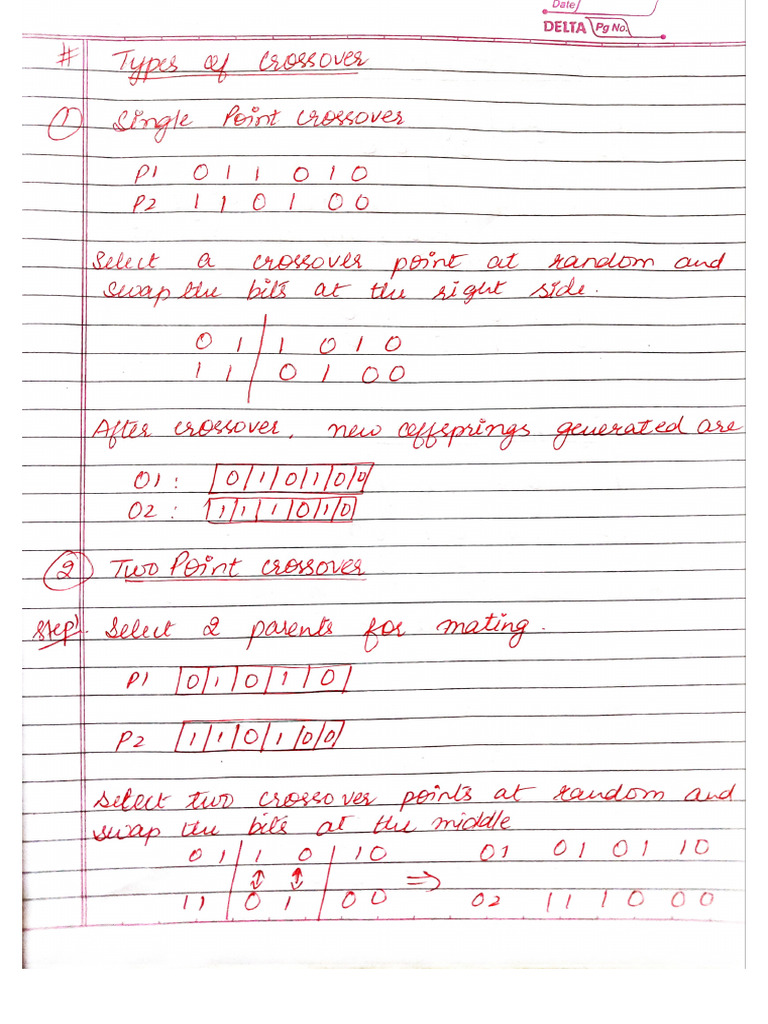 Date
DELTA Pg No.
# Types of crossover
① Single Point crossover
P1 0 1 1 0 1 0
P2 1 1 0 1 0 0
Select a crossover point at random and
swap the bits at the right side.
0 1 / 1 0 1 0
1 1 / 0 1 0 0
After crossover, new offsprings generated are
O1 : |0|1|0|1|0|0|
O2 : |1|1|1|0|1|0|
② Two Point crossover
Step 1. Select 2 parents for mating.
P1 |0|1|0|1|0|
P2 |1|1|0|1|0|0|
Select two crossover points at random and
swap the bits at the middle
0 1 | 1 0 | 1 0 O1 0 1 0 1 1 0
↕ ↕ ⇒
1 1 | 0 1 | 0 0 O2 1 1 1 0 0 0